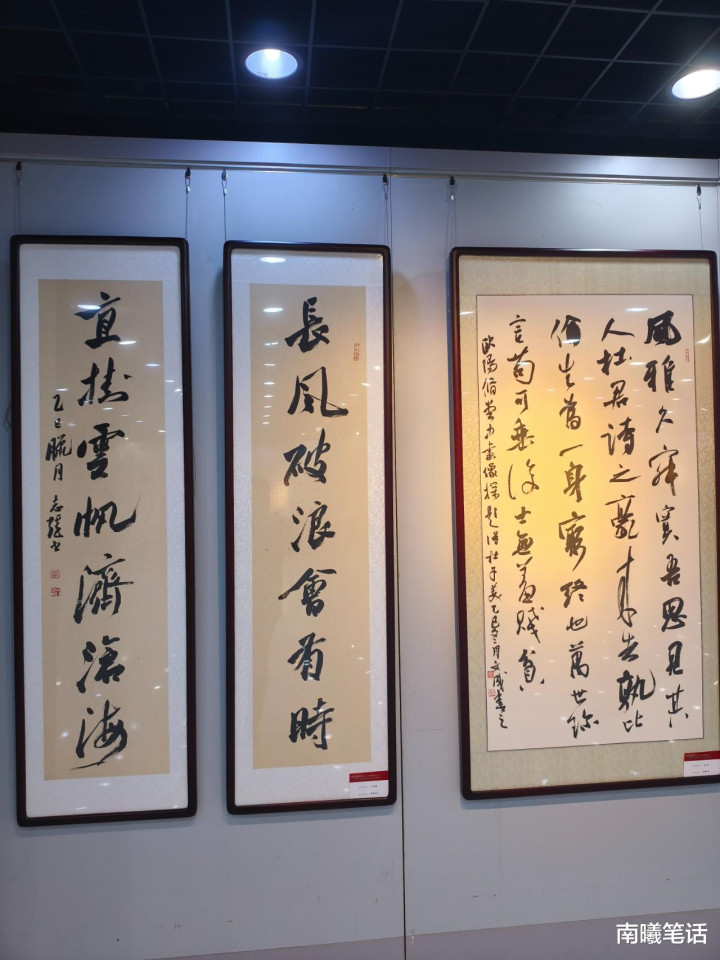 風雅久寂寞吾思見其
人杜君詩之豪來者孰比
倫生為一身窮死也萬世珍
言苟可垂後士無羞賤貧
歐陽脩堂中畫像探題得杜子美乙巳月文成書之
長風破浪會有時
直掛雲帆濟滄海
乙巳臘月 志強書
南曦笔话